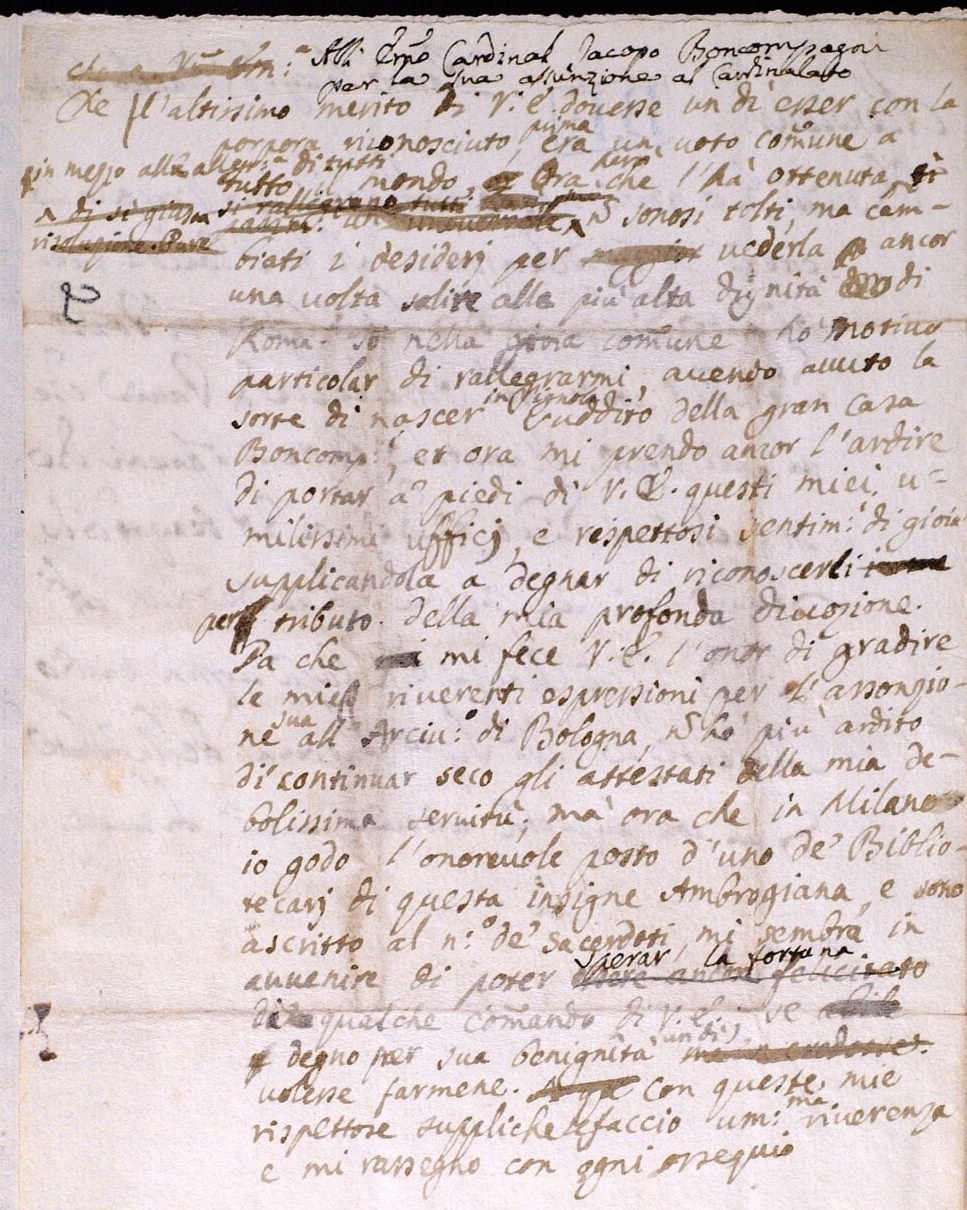 All' Em̃o Cardinal Jacopo Boncompagni
per la sua assunzione al Cardinalato
Che l'altissimo merito di V. E. dovesse un dì esser con la
porpora riconosciuto, era prima un voto comune a
in mezzo alla allegr.ª di tutti
tutto il mondo, Ora però che l'hà ottenuta,
risoluzione. Pure
ñ sonosi tolti, ma cam-
biati i desiderj per vederla ancor
una volta salire alla più alta dignità di
Roma. Io nella gioia comune hò motivo
particolar di rallegrarmi, avendo avuto la
sorte di nascer in Vignola suddito della gran casa
Boncomp.i, et ora mi prendo ancor l'ardire
di portar a' piedi di V. E. questi miei u-
milissimi ufficj, e rispettosi sentim.i di gioia
supplicandola a degnar di riconoscerli
per tributo della mia profonda divozione.
Da che mi fece V. E. l'onor di gradire
le mie riverenti espressioni per l'assonzio-
ne sua all'Arciv.o di Bologna, ñ hò più ardito
di continuar seco gli attestati della mia de-
bolissima servitù; mà ora che in Milano
io godo l'onorevole posto d'uno de' Biblio-
tecarj di questa insigne Ambrogiana, e sono
ascritto al n.o de' Sacerdoti, mi sembra in
avvenire di poter sperar la fortuna
di qualche com̃ando di V. E. se
degno per sua benignità un dì
volesse farmene. Con queste mie
rispettose suppliche faccio um.ma riverenza
e mi rassegno con ogni ossequio